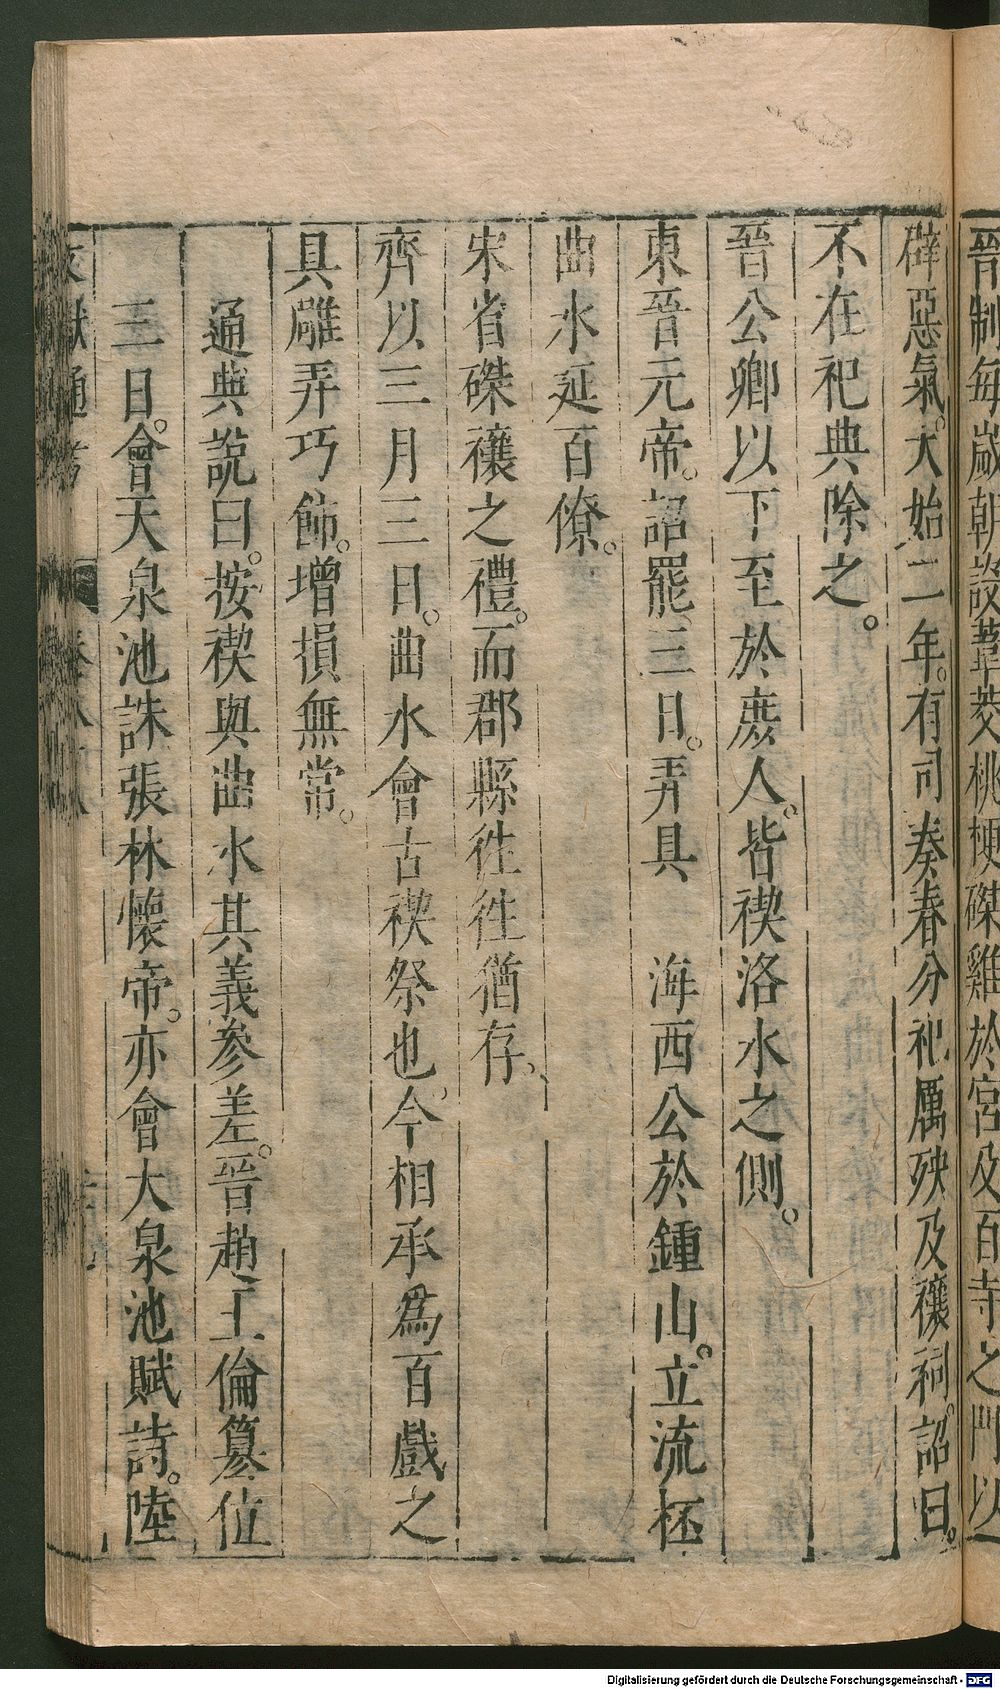 晉制每歲朝設葦茭桃梗磔雞於宮及百寺之門以
辟惡氣。大始二年。有司奏春分祀厲殃及禳祠。詔曰。
不在祀典除之。
晉公卿以下至於庶人。皆禊洛水之側。
東晉元帝。詔罷三日。弄具 海西公於鍾山。立流杯
曲水延百僚。
宋省磔禳之禮。而郡縣徃徃猶存、
齊以三月三日。曲水會古禊祭也。今相承爲百戲之
具雕弄巧飾。增損無常。
通典說曰。按禊與曲水其義參差。晉趙王倫篡位
三日。會天泉池誅張林懷帝。亦會大泉池賦詩。陸
文獻通考
Digitalisierung gefördert durch die Deutsche Forschungsgemeinschaft - DFG